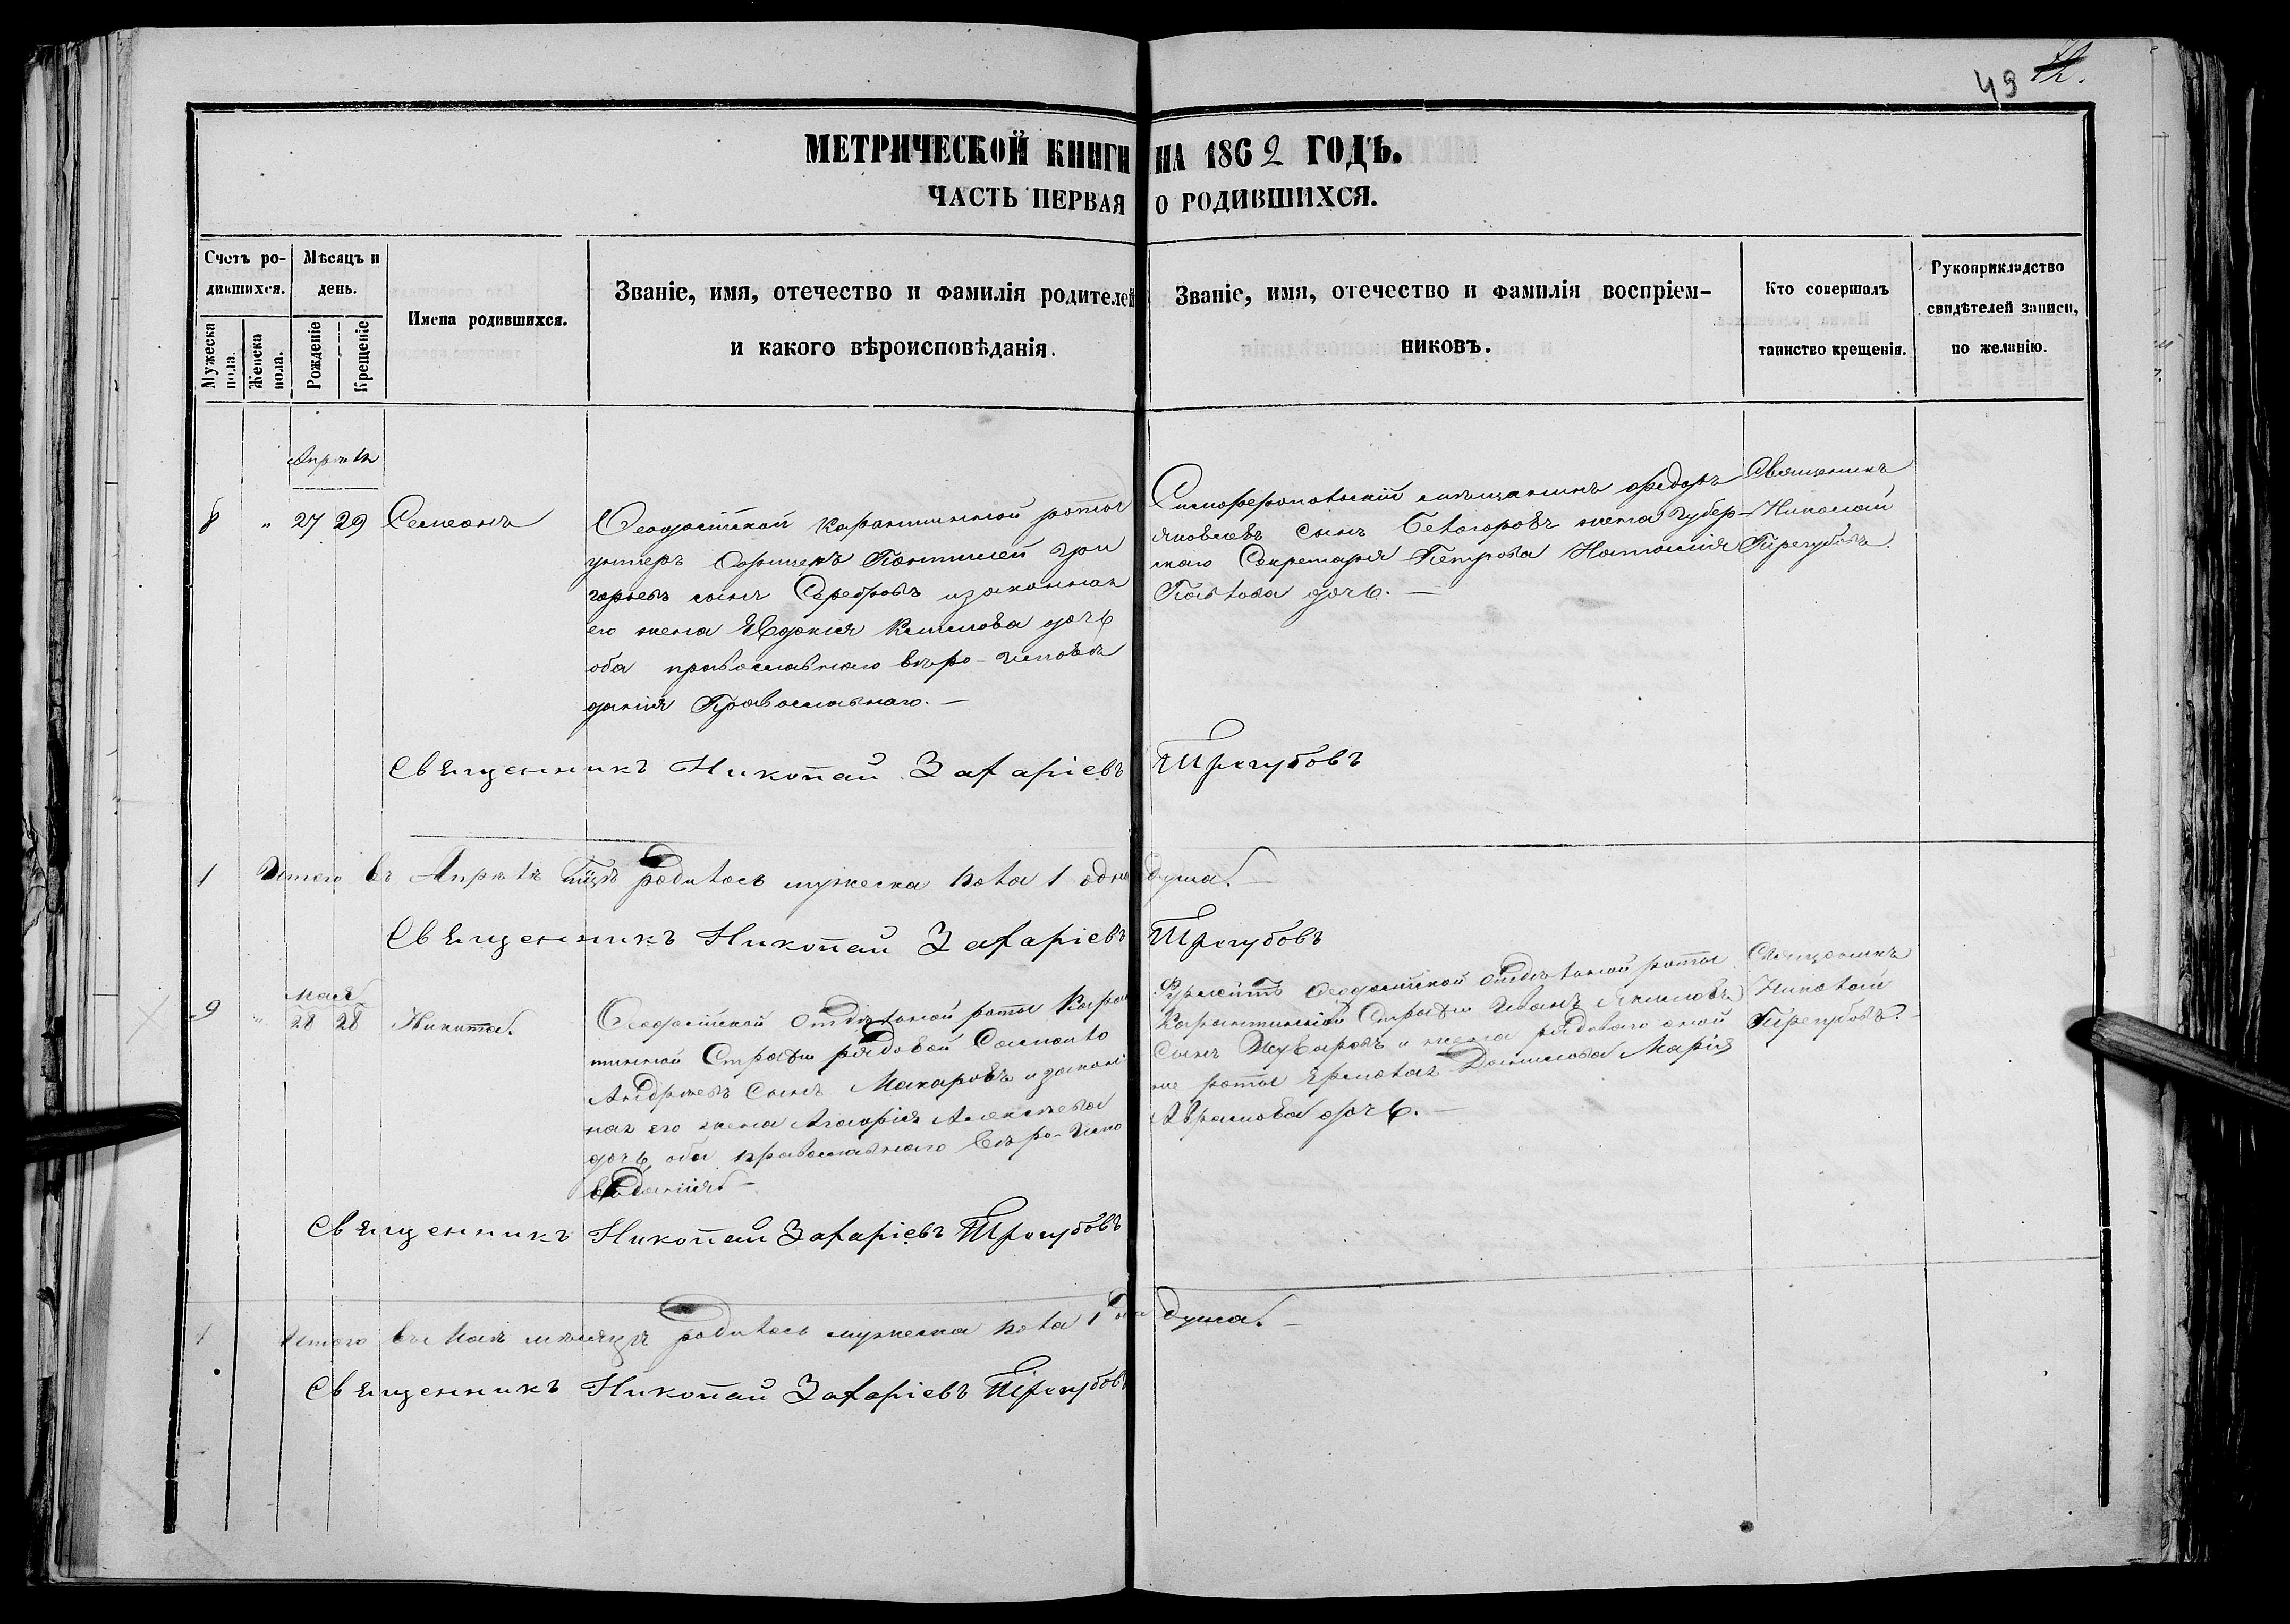 49 72.
МЕТРИЧЕСКОЙ КНИГИ НА 1862 ГОДЪ.
ЧАСТЬ ПЕРВАЯ О РОДИВШИХСЯ.
Счетъ ро-
дившихся.
Мужеска пола.
Женска пола.
Мѣсяцъ и
день.
Рожденіе
Крещеніе
Имена родившихся.
Званіе, имя, отечество и фамилія родителей
и какого вѣроисповѣданія.
Званіе, имя, отечество и фамилія воспріем-
никовъ.
Кто совершалъ
таинство крещенія.
Рукоприкладство
свидѣтелей записи,
по желанію.
Апрѣль
8 " 27 29 Симеонъ
Ѳеодосійской карантинной роты
унтеръ Офицеръ Пантилей Гри
горьевъ сынъ Серебровъ и законная
его жена Евдокия Климова дочь
оба православнаго вѣро-исповѣ
данія Православнаго. —
Симферопольскій мѣщанинъ Федоръ
Яковлевъ сынъ Бѣлогоровъ жена Губер-
скаго Секретаря Петрова Наталия
Павлова дочь. —
Священникъ
Николай
Трегубовъ.
Священникъ Николай Захаріевъ Трегубовъ
1 Итого въ Апрѣлѣ м-цѣ родилось мужеска пола 1 одна душа. —
Священникъ Николай Захаріевъ Трегубовъ
Май
9 " 28 28 Никита.
Ѳеодосійской отдѣльной роты Каран
тинной Стражи рядовой Самойло
Андреевъ Сынъ Макаровъ и закон
ная его жена Алексѣева
дочь, оба православнаго Вѣро-Испо
вѣданія. —
Ѳеодосійской отдѣльной роты
Карантинной Стражи Иванъ Якимовъ
Сынъ и жена рядоваго оной
же роты Ермолая Данилова Марія
Абрамова дочь. —
Священникъ
Николай
Трегубовъ.
Священникъ Николай Захаріевъ Трегубовъ
1 Итого въ Маѣ мѣсяцѣ родилось мужеска пола 1 одна душа. —
Священникъ Николай Захаріевъ Трегубовъ